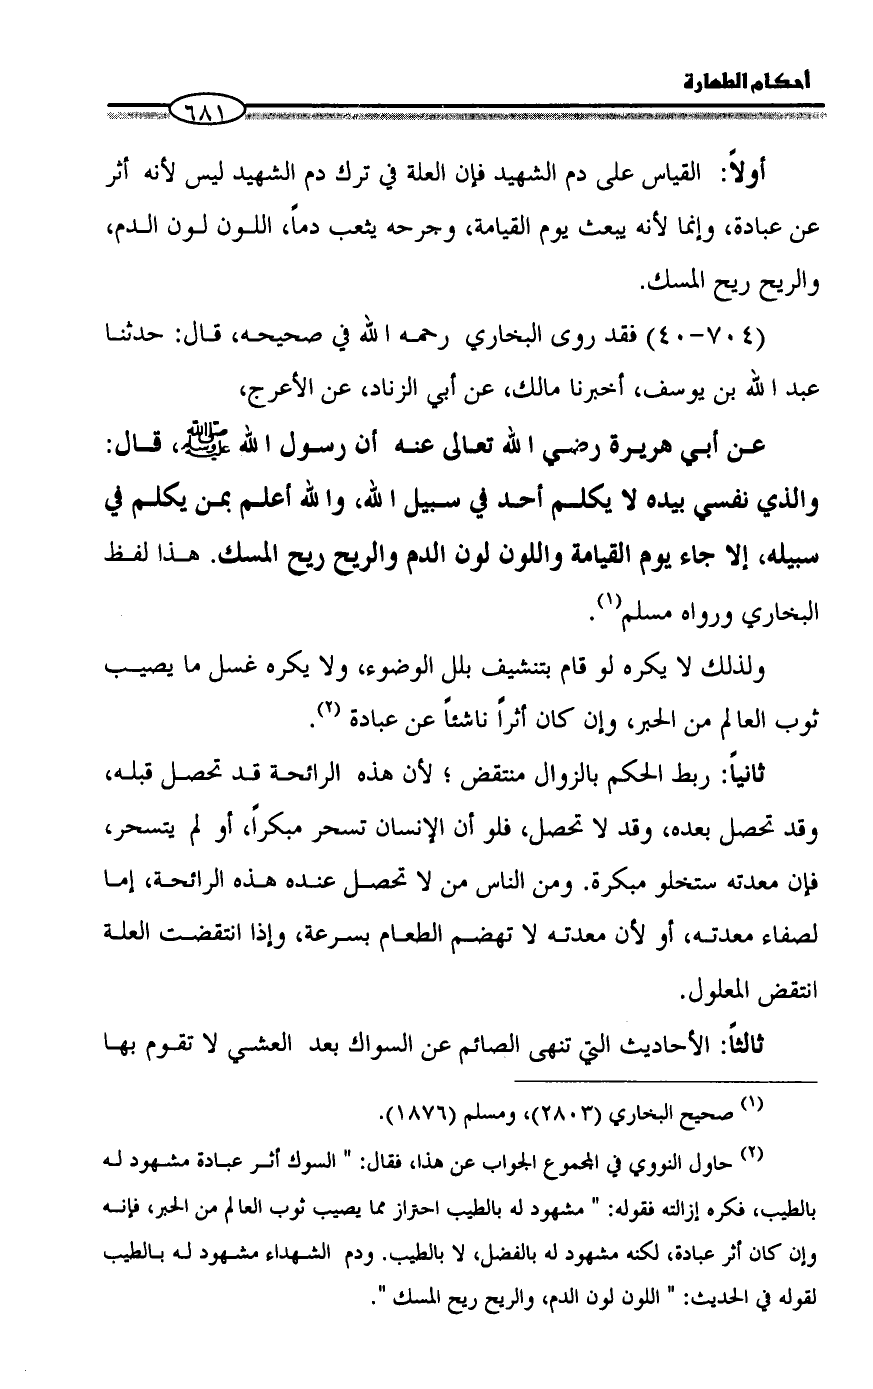 أحكام الطهارة
٦٨١
أولاً: القياس على دم الشهيد فإن العلة في ترك دم الشهيد ليس لأنه أثر
عن عبادة، وإنما لأنه يبعث يوم القيامة، وجرحه يثعب دماً، اللون لون الدم،
والريح ريح المسك.
(٧٠٤-٤٠) فقد روى البخاري رحمه الله في صحيحه، قال: حدثنا
عبد الله بن يوسف، أخبرنا مالك، عن أبي الزناد، عن الأعرج،
عن أبي هريرة رضي الله تعالى عنه أن رسول الله ﷺ، قال:
والذي نفسي بيده لا يكلم أحد في سبيل الله، والله أعلم بمن يكلم في
سبيله، إلا جاء يوم القيامة واللون لون الدم والريح ريح المسك. هذا لفظ
البخاري ورواه مسلم(١).
ولذلك لا يكره لو قام بتنشيف بلل الوضوء، ولا يكره غسل ما يصيب
ثوب العالم من الحبر، وإن كان أثراً ناشئاً عن عبادة (٢).
ثانياً: ربط الحكم بالزوال منتقض ؛ لأن هذه الرائحة قد تحصل قبله،
وقد تحصل بعده، وقد لا تحصل، فلو أن الإنسان تسحر مبكراً، أو لم يتسحر،
فإن معدته ستخلو مبكرة. ومن الناس من لا تحصل عنده هذه الرائحة، إما
لصفاء معدته، أو لأن معدته لا تهضم الطعام بسرعة، وإذا انتقضت العلة
انتقض المعلول.
ثالثاً: الأحاديث التي تنهى الصائم عن السواك بعد العشي لا تقوم بها
(١) صحيح البخاري (٢٨٠٣)، ومسلم (١٨٧٦).
(٢) حاول النووي في المجموع الجواب عن هذا، فقال: " السوك أثر عبادة مشهود له
بالطيب، فكره إزالته فقوله: " مشهود له بالطيب احتراز مما يصيب ثوب العالم من الحبر، فإنه
وإن كان أثر عبادة، لكنه مشهود له بالفضل، لا بالطيب. ودم الشهداء مشهود له بالطيب
لقوله في الحديث: " اللون لون الدم، والريح ريح المسك ".